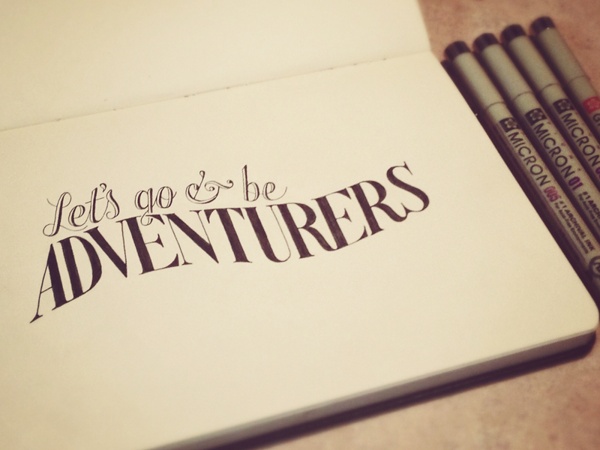 Let's go & be
ADVENTURERS
MICRON 005
MICRON 01
MICRON